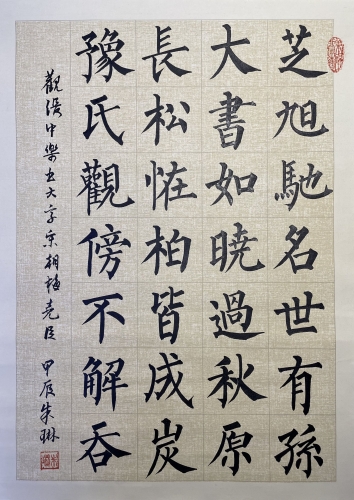 芝旭馳名世有孫
大書如曉過秋原
長松恠柏皆成炭
豫氏觀傍不解吞
觀張中樂書大字宋梅堯臣 甲辰朱琳